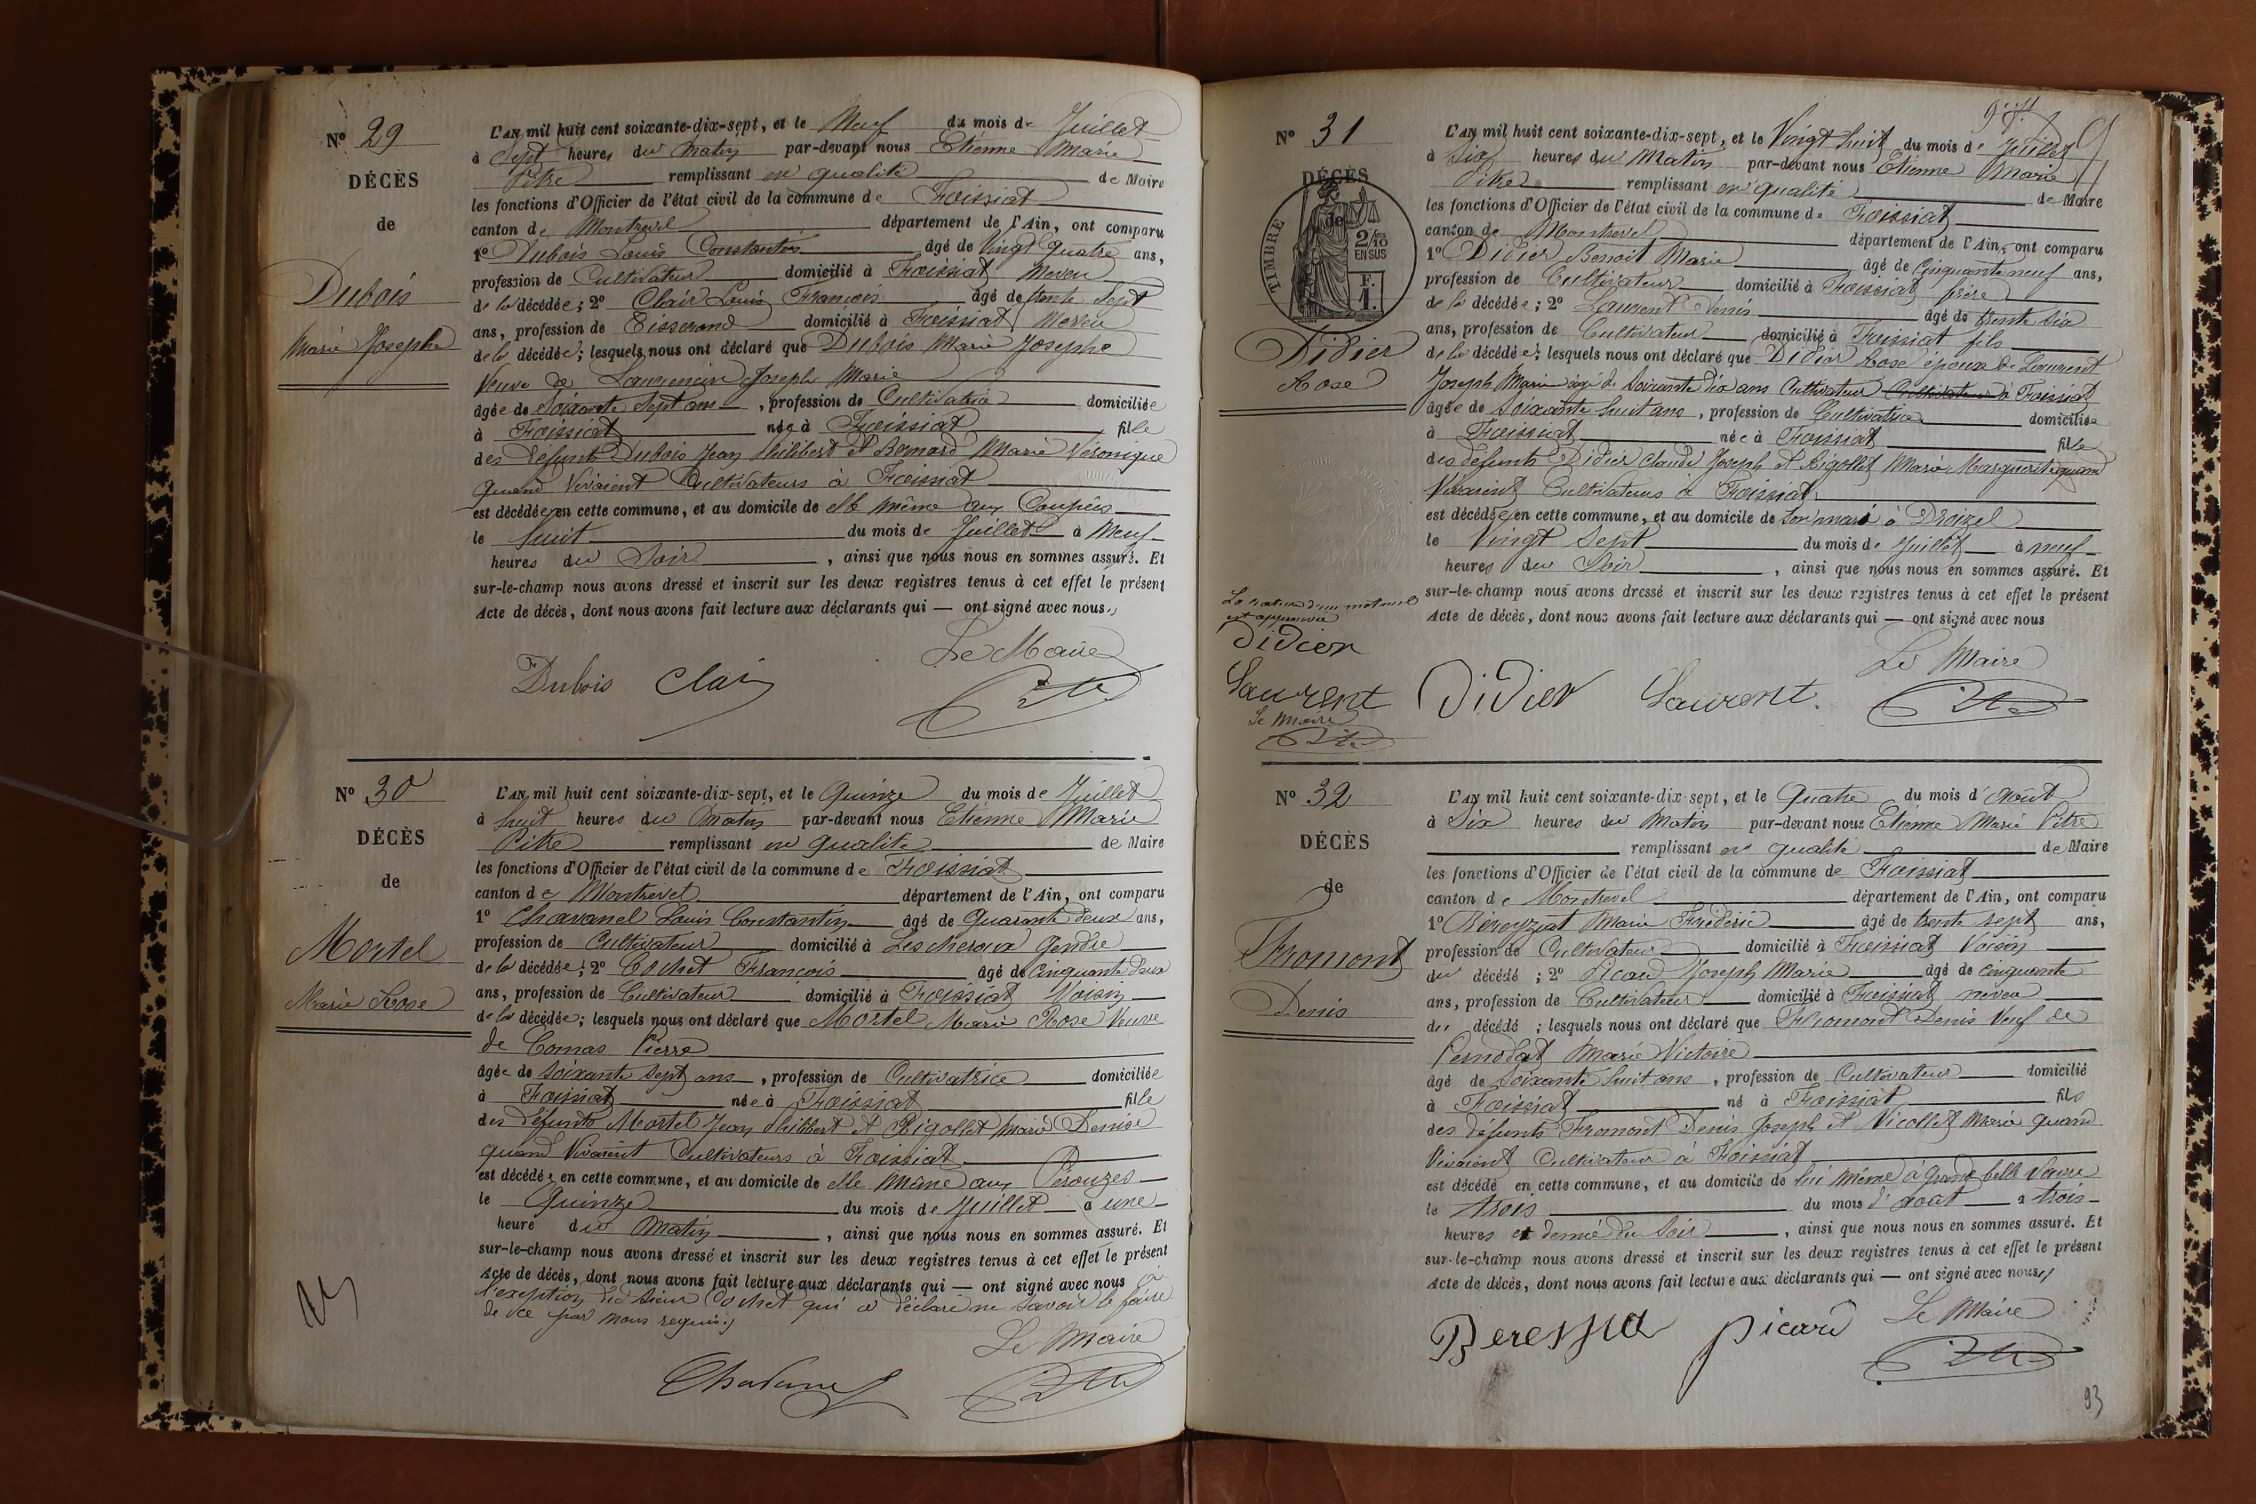 N° 29
DÉCÈS
de
Dubois
Marie Josephe
L'AN mil huit cent soixante-dix-sept, et le Neuf du mois de Juillet
à Sept heures du Matin par-devant nous Etienne Marie
Pitre remplissant en qualité de Maire
les fonctions d'Officier de l'état civil de la commune de Foissiat
canton de Montrevel département de l'Ain, ont comparu
1° Dubois Louis Constantin âgé de Vingt Quatre ans,
profession de Cultivateur domicilié à Foissiat Neveu
de la décédée; 2° Clair Louis François âgé de trente Sept
ans, profession de Tisserand domicilié à Foissiat Neveu
de la décédée; lesquels nous ont déclaré que Dubois Marie Josephe
Veuve de Joseph Marie
âgée de Soixante Sept ans, profession de Cultivatrice domiciliée
à Foissiat née à Foissiat fille
des défunts Dubois Jean Philibert et Bernard Marie Véronique
quand Vivaient Cultivateurs à Foissiat
est décédée en cette commune, et au domicile de elle même aux
le huit du mois de Juillet à Neuf
heures du Soir, ainsi que nous nous en sommes assuré. Et
sur-le-champ nous avons dressé et inscrit sur les deux registres tenus à cet effet le présent
Acte de décès, dont nous avons fait lecture aux déclarants qui — ont signé avec nous
Le Maire
Dubois Clair Pitre
N° 30
DÉCÈS
de
Mortel
Marie Rose
L'AN mil huit cent soixante-dix-sept, et le Quinze du mois de Juillet
à huit heures du Matin par-devant nous Etienne Marie
Pitre remplissant en qualité de Maire
les fonctions d'Officier de l'état civil de la commune de Foissiat
canton de Montrevel département de l'Ain, ont comparu
1° Chavanel Louis Constantin âgé de Quarante deux ans,
profession de Cultivateur domicilié à Lescheroux Gendre
de la décédée; 2° Cochet François âgé de Cinquante deux
ans, profession de Cultivateur domicilié à Foissiat Voisin
de la décédée; lesquels nous ont déclaré que Mortel Marie Rose Veuve
de Comas Pierre
âgée de Soixante Sept ans, profession de Cultivatrice domiciliée
à Foissiat née à Foissiat fille
des défunts Mortel Jean Philibert et Rigollet Marie Denise
quand Vivaient Cultivateurs à Foissiat
est décédée en cette commune, et au domicile de elle même aux Pérouzes
le Quinze du mois de Juillet à une
heure du Matin, ainsi que nous nous en sommes assuré. Et
sur-le-champ nous avons dressé et inscrit sur les deux registres tenus à cet effet le présent
Acte de décès, dont nous avons fait lecture aux déclarants qui — ont signé avec nous à
l'exeption du Sieur Cochet qui a déclaré ne Savoir le faire
de ce par nous requis
Le Maire
Chavanel Pitre
N° 31
DÉCÈS
de
TIMBRE
2/10
EN SUS
F.
1.
Didier
Rose
L'AN mil huit cent soixante-dix-sept, et le Vingt huit du mois de Juillet
à Six heures du Matin par-devant nous Etienne Marie
Pitre remplissant en qualité de Maire
les fonctions d'Officier de l'état civil de la commune de Foissiat
canton de Montrevel département de l'Ain, ont comparu
1° Didier Benoit Marie âgé de Cinquante neuf ans,
profession de Cultivateur domicilié à Foissiat frère
de la décédée; 2° Laurent Denis âgé de trente Six
ans, profession de Cultivateur domicilié à Foissiat fils
de la décédée; lesquels nous ont déclaré que Didier Rose épouse de Laurent
Joseph Marie âgé de Soixante dix ans Cultivateur Cultivateur à Foissiat
âgée de Soixante huit ans, profession de Cultivatrice domiciliée
à Foissiat née à Foissiat fille
des défunts Didier Claude Joseph et Rigollet Marie Marguerite quand
Vivaient Cultivateurs à Foissiat
est décédée en cette commune, et au domicile de Son mari à
le Vingt Sept du mois de Juillet à neuf
heures du Soir, ainsi que nous nous en sommes assuré. Et
sur-le-champ nous avons dressé et inscrit sur les deux registres tenus à cet effet le présent
Acte de décès, dont nous avons fait lecture aux déclarants qui — ont signé avec nous
La rature d'un mot nul
est approuvée
Didier
Laurent
Le Maire
Pitre
Le Maire
Didier Laurent Pitre
N° 32
DÉCÈS
de
Fromont
Denis
L'AN mil huit cent soixante-dix-sept, et le Quatre du mois d'Août
à Six heures du Matin par-devant nous Etienne Marie Pitre
remplissant en qualité de Maire
les fonctions d'Officier de l'état civil de la commune de Foissiat
canton de Montrevel département de l'Ain, ont comparu
1° Béreyziat Marie Frédéric âgé de trente sept ans,
profession de Cultivateur domicilié à Foissiat Voisin
du décédé; 2° Picard Joseph Marie âgé de cinquante
ans, profession de Cultivateur domicilié à Foissiat neveu
du décédé; lesquels nous ont déclaré que Fromont Denis Veuf de
Marie Victoire
âgé de Soixante huit ans, profession de Cultivateur domicilié
à Foissiat né à Foissiat fils
des défunts Fromont Denis Joseph et Nicollet Marie quand
Vivaient Cultivateur à Foissiat
est décédé en cette commune, et au domicile de lui même à
le trois du mois d'aoat à trois
heures et demie du Soir, ainsi que nous nous en sommes assuré. Et
sur-le-champ nous avons dressé et inscrit sur les deux registres tenus à cet effet le présent
Acte de décès, dont nous avons fait lecture aux déclarants qui — ont signé avec nous
Le Maire
picard Pitre
93